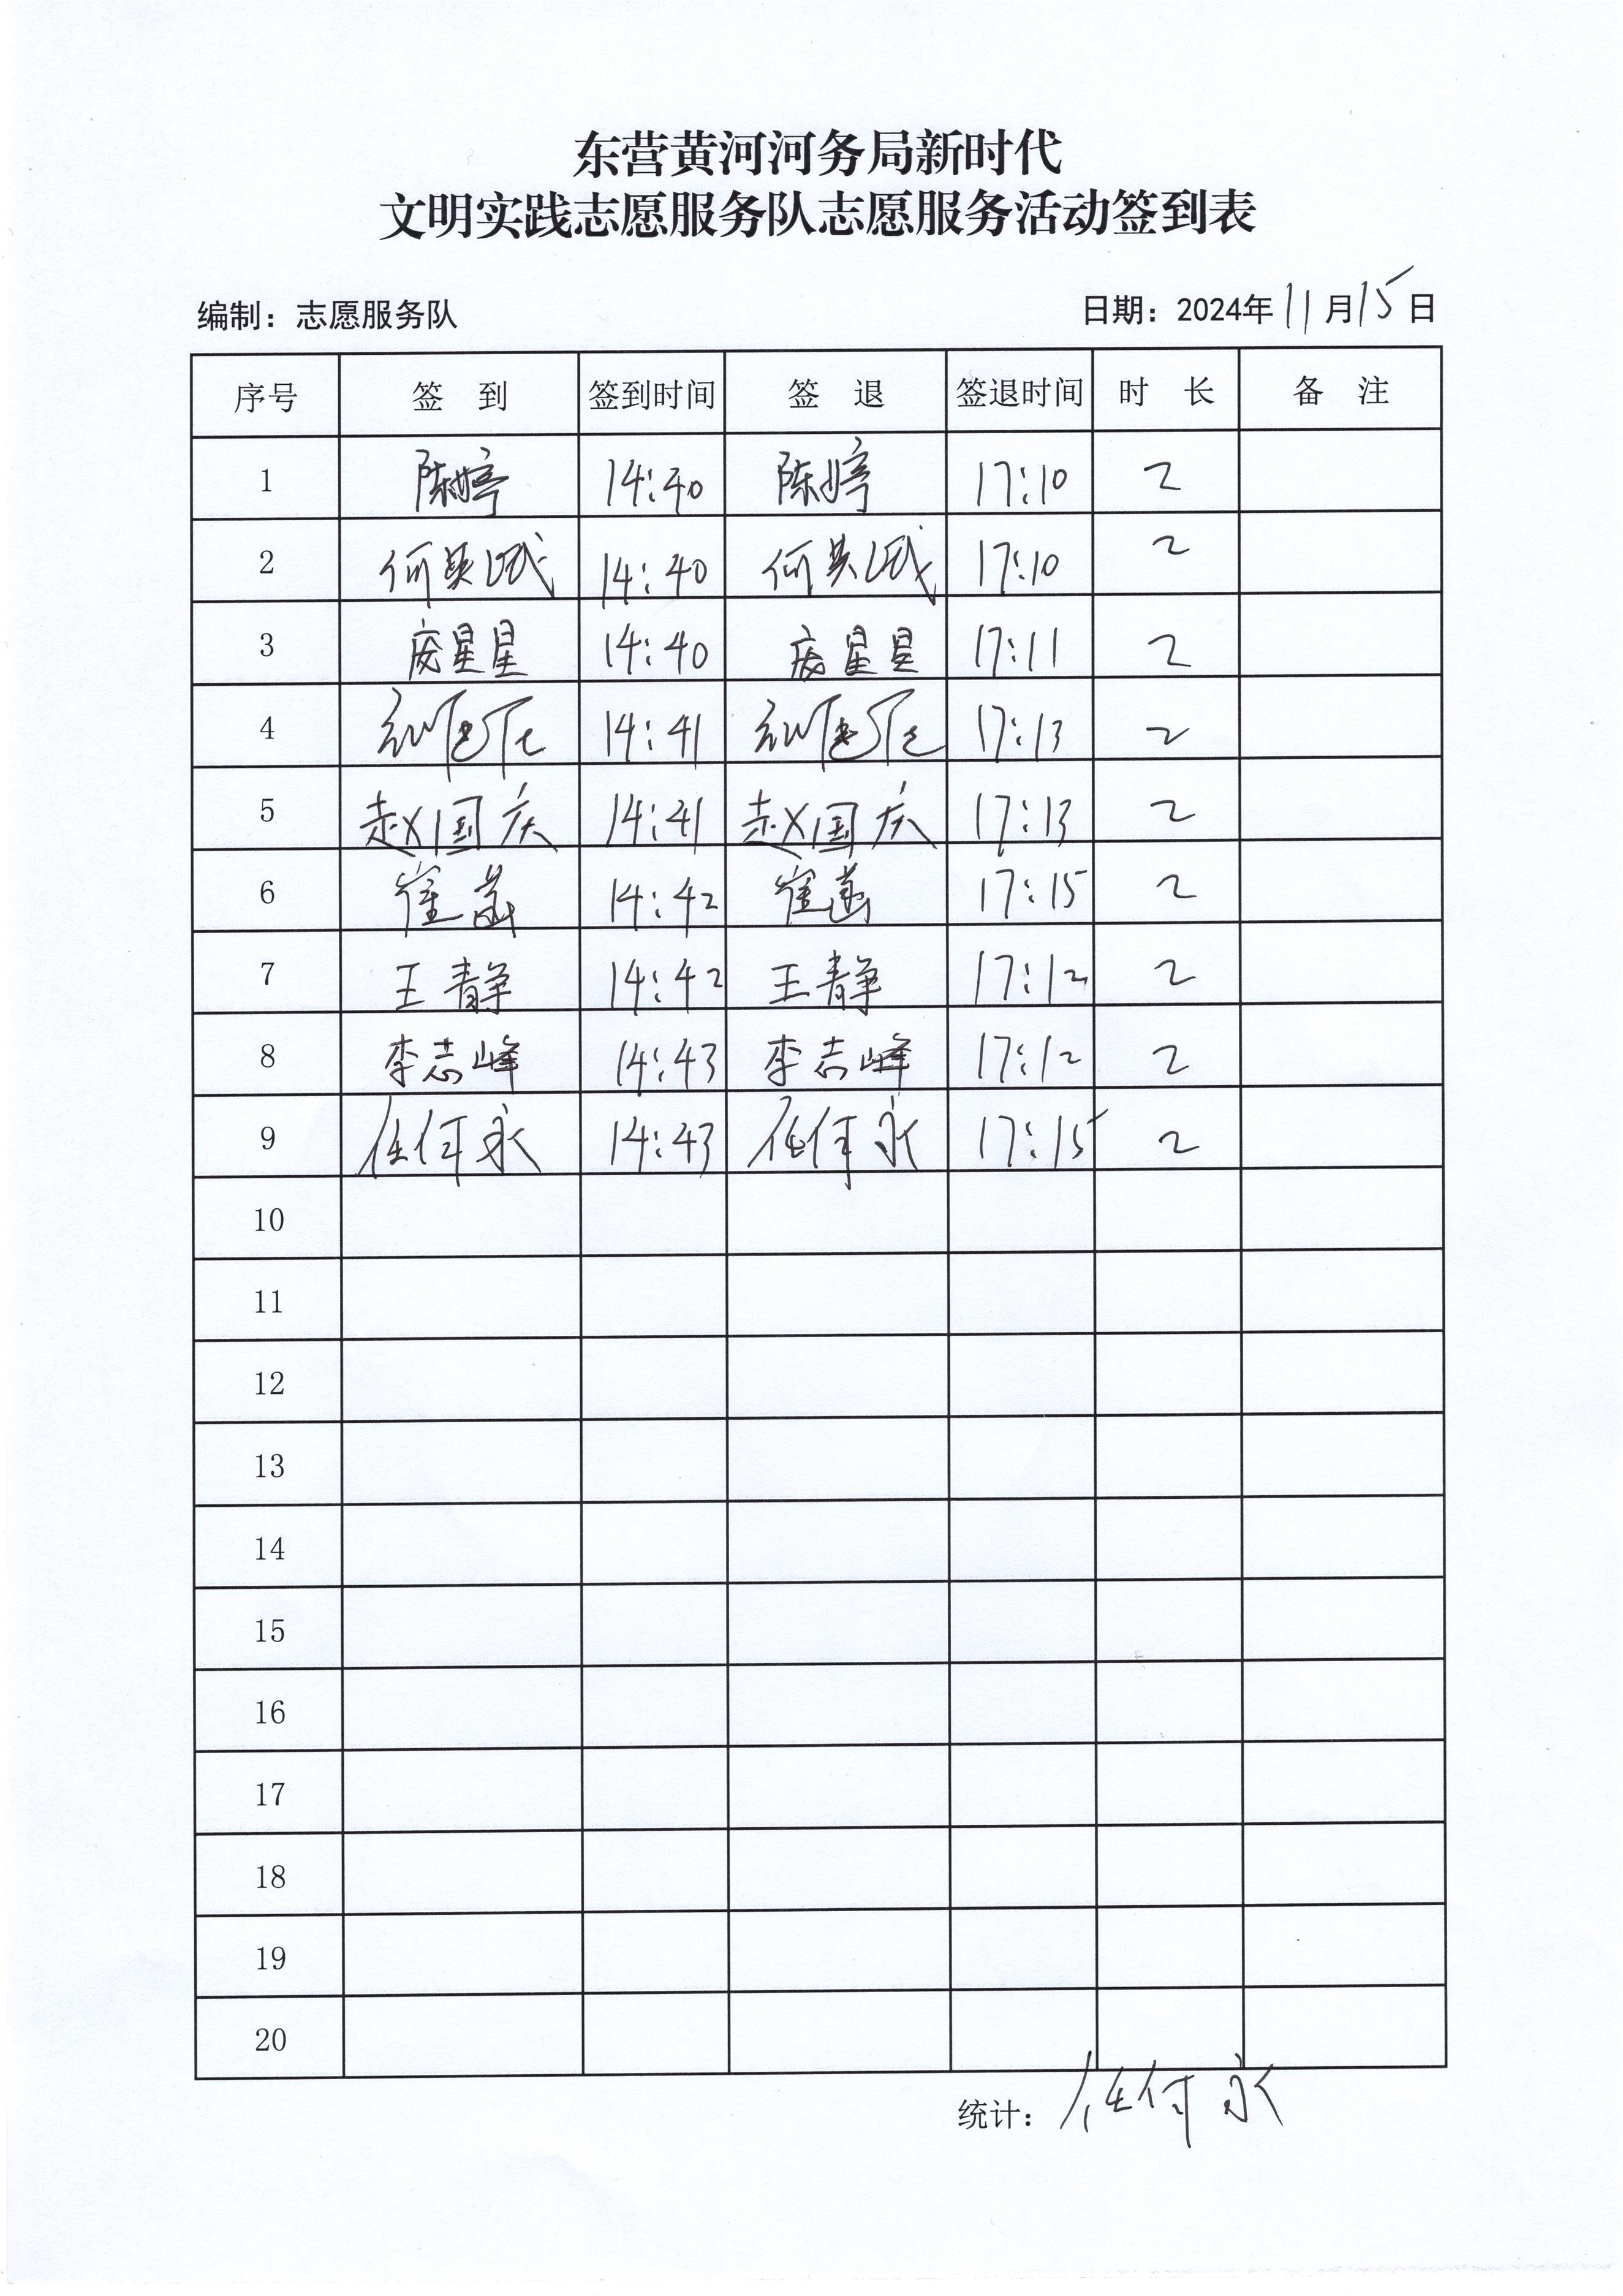 东营黄河河务局新时代
文明实践志愿服务队志愿服务活动签到表
编制：志愿服务队 日期：2024年11月15日
序号 签到 签到时间 签退 签退时间 时长 备注
1 陈婷 14:40 陈婷 17:10 2
2 何 14:40 何 17:10 2
3 庞星星 14:40 庞星星 17:11 2
4 14:41 17:13 2
5 赵国庆 14:41 赵国庆 17:13 2
6 崔菡 14:42 崔菡 17:15 2
7 王静 14:42 王静 17:12 2
8 李志峰 14:43 李志峰 17:12 2
9 任何永 14:43 任何永 17:15 2
10
11
12
13
14
15
16
17
18
19
20
统计：任何永